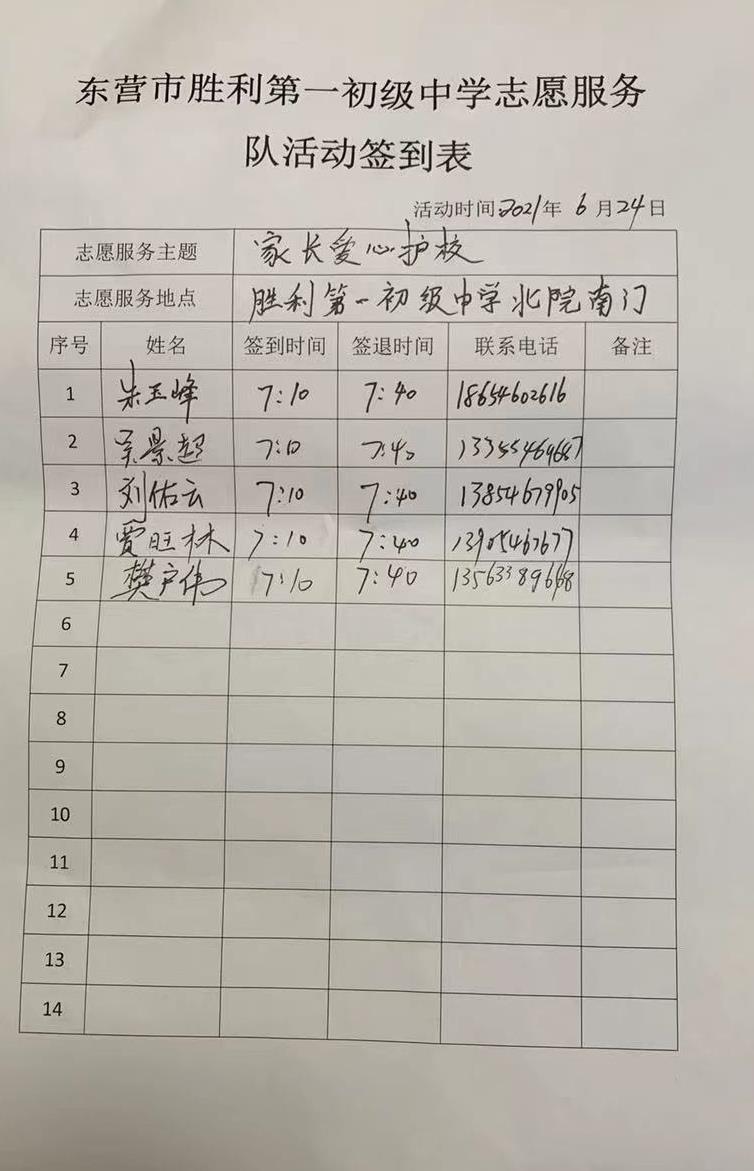 东营市胜利第一初级中学志愿服务
队活动签到表
活动时间2021年 6月24日
志愿服务主题 家长爱心护校
志愿服务地点 胜利第一初级中学北院南门
序号 姓名 签到时间 签退时间 联系电话 备注
1 朱玉峰 7:10 7:40 18654602616
2 吴景超 7:10 7:40
3 刘佑云 7:10 7:40 13854679905
4 贾旺林 7:10 7:40 13905467677
5 樊户伟 7:10 7:40 13563389668
6
7
8
9
10
11
12
13
14